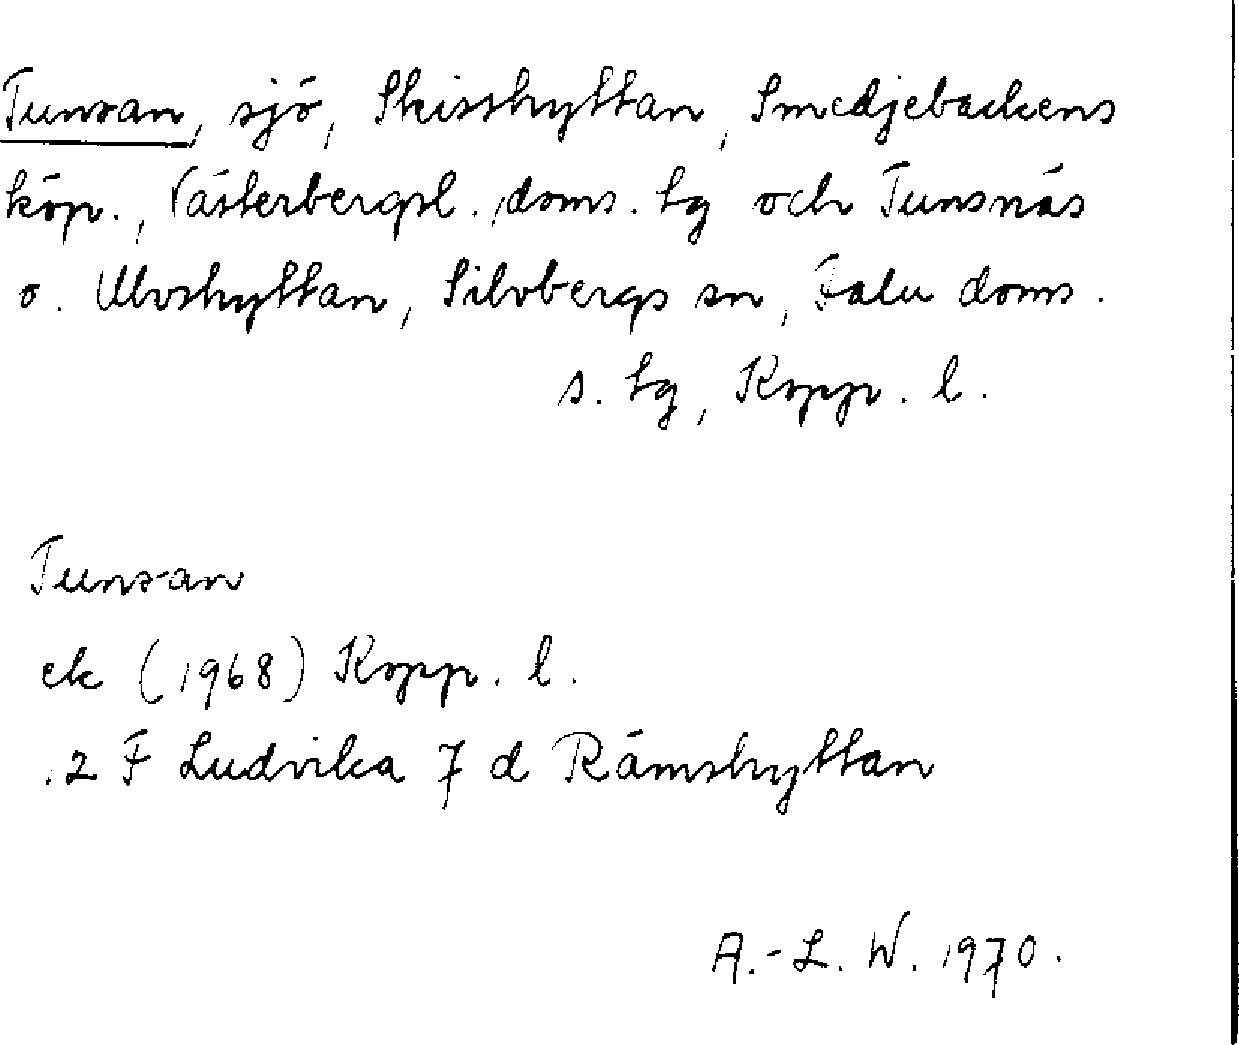 Tunsan, sjö, Skisshyttan, Smedjebackens
köp., Västerbergsl. doms. tg och Tunsnäs
o. Ulvshyttan, Silvbergs sn, Falu doms.
s. tg, Kopp. l.
Tunsan
ek (1968) Kopp. l.
12 F Ludvika 7 d Rämshyttan
A.-L. W. 1970.